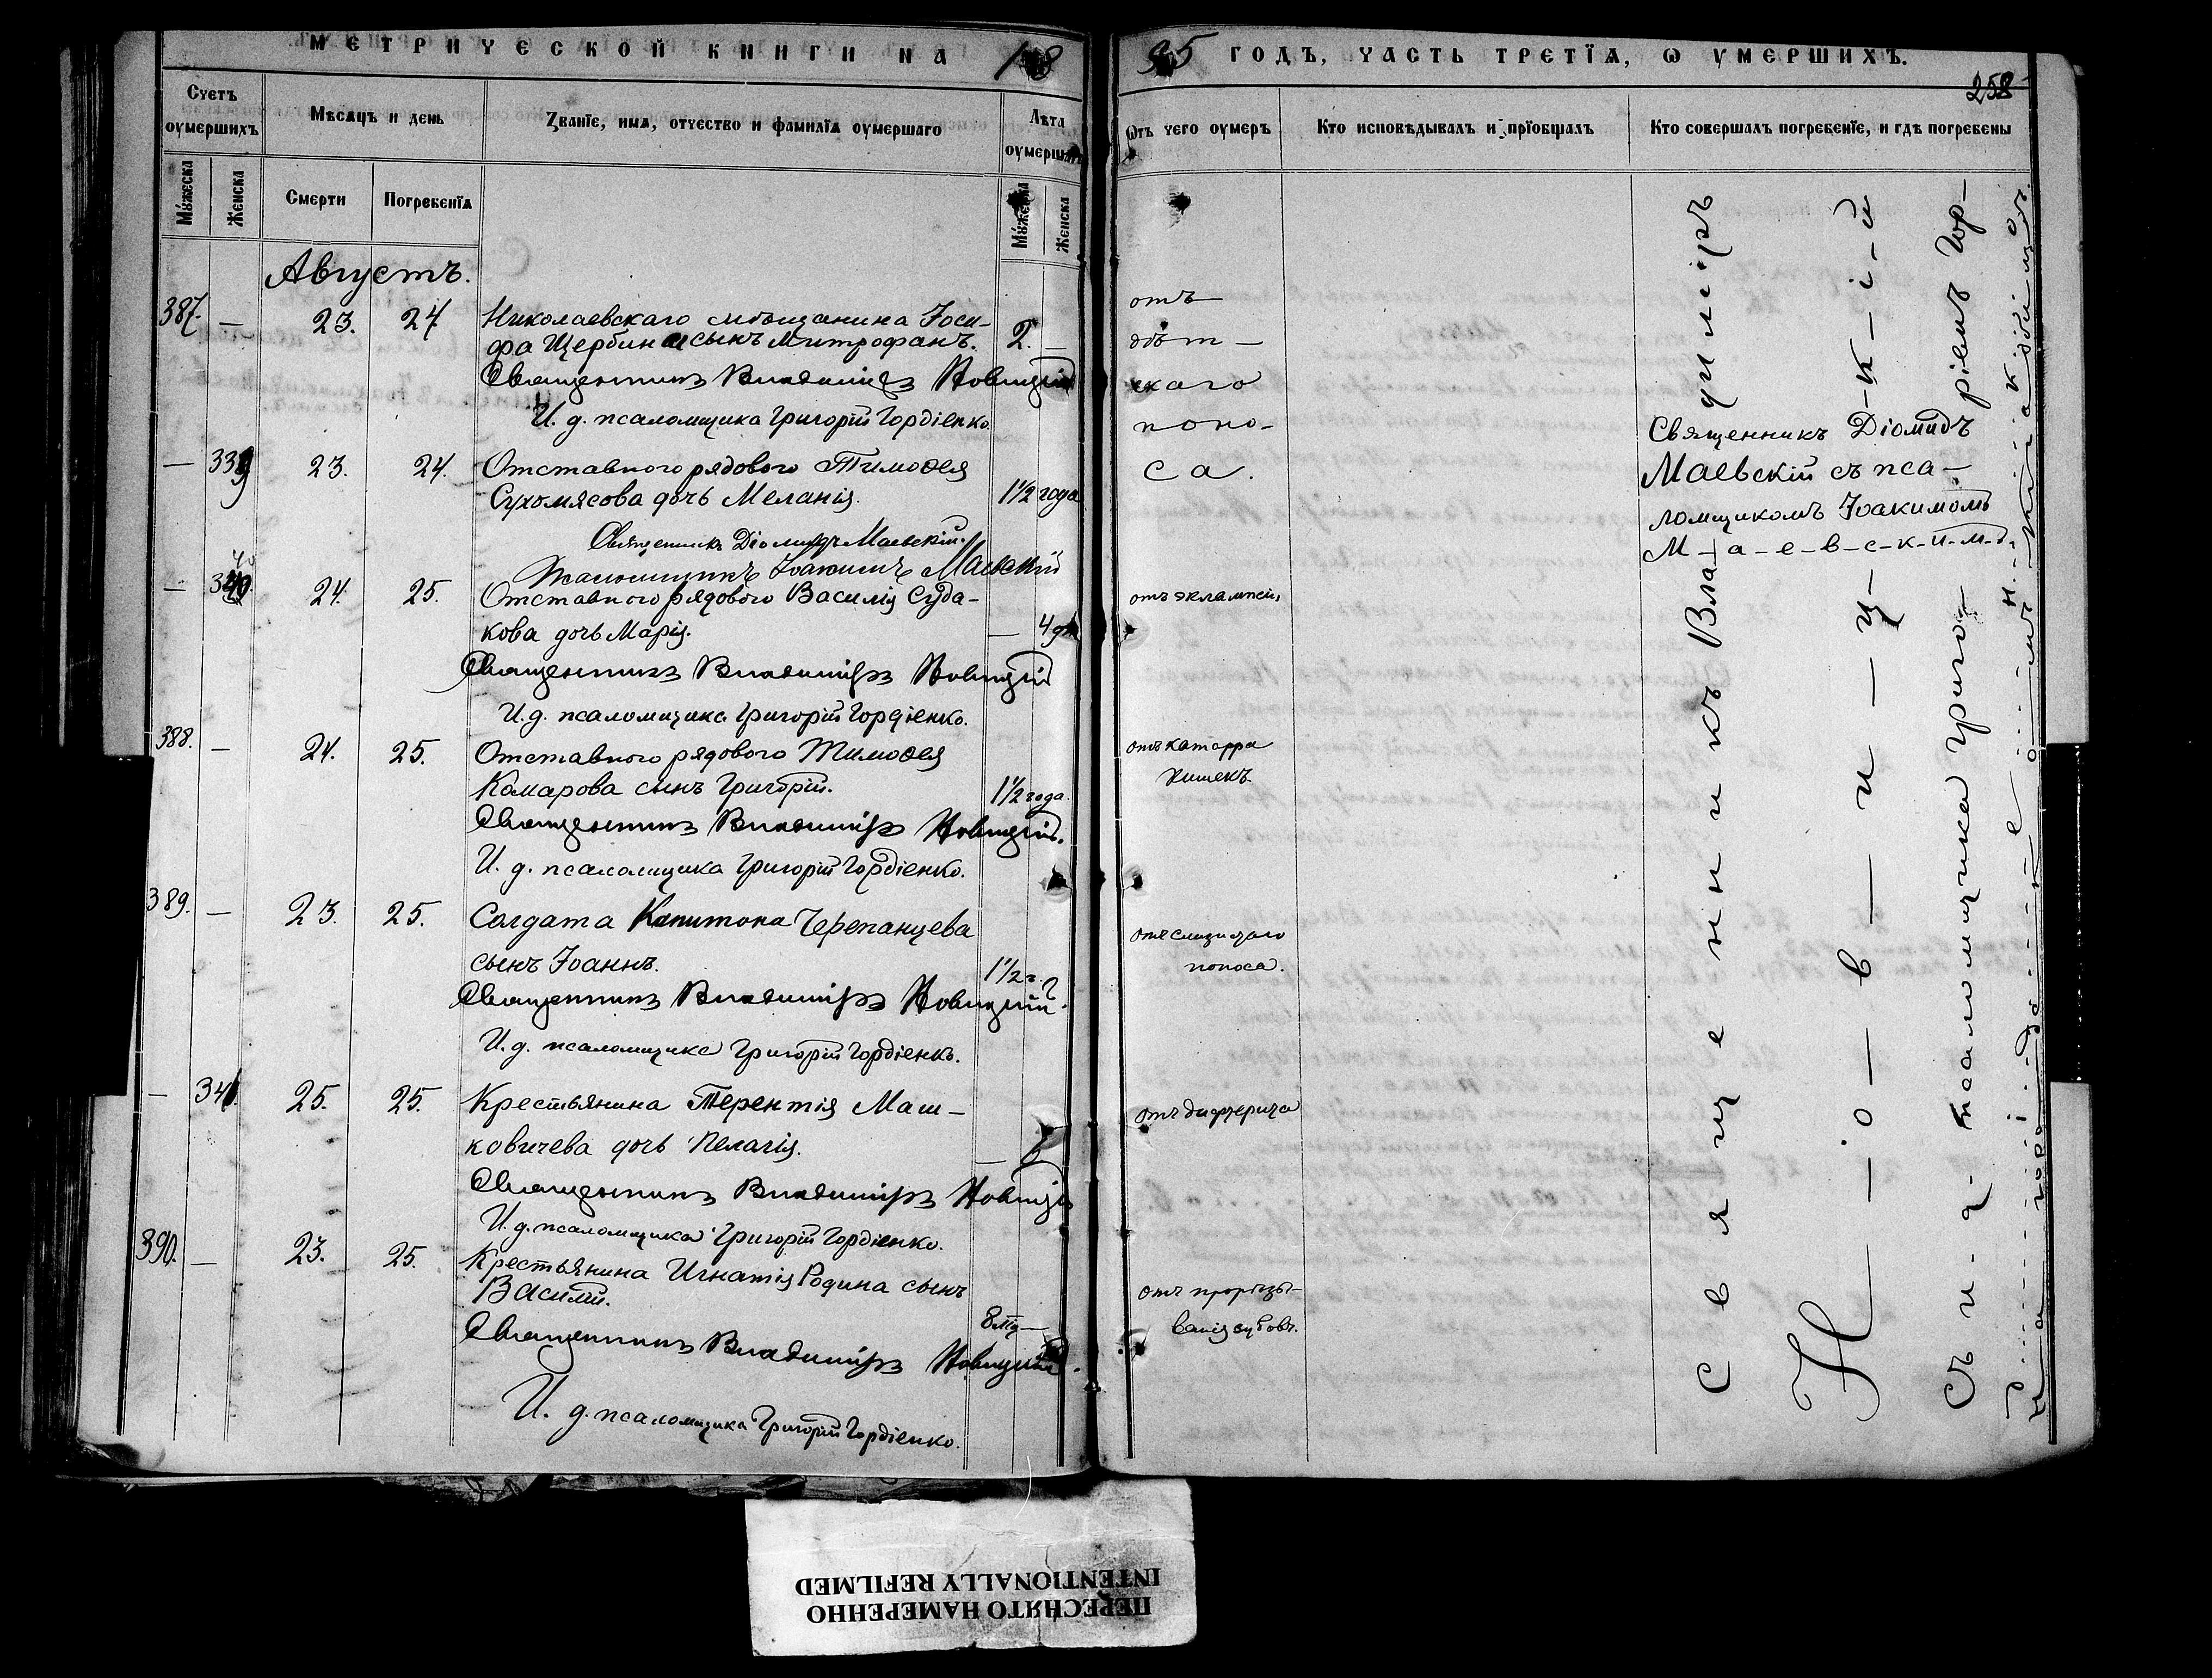 МЕТРИЧЕСКОЙ КНИГИ НА 18
Счетъ оумершихъ
Мѣсяцъ и день
Званїе, имѧ, отчество и фамилїѧ оумершаго
Лѣта оумершаго
Мужеска
Женска
Смерти
Погребенїѧ
Мужеска
Женска
Августъ.
387. — 23. 24. Николаевскаго мѣщанина Іоси-
фа Щербины сынъ Митрофанъ. 2. —
Священникъ Владиміръ Новицкій
И. д. псаломщика Григорій Гордіенко.
— 339 23. 24. Отставного рядового Тимоѳея
Сухомясова дочь Меланія. 1½ года
Священникъ Діомидъ Маевскій.
Псаломщикъ Іоакимъ Маевскій
— 340. 24. 25. Отставного рядового Василія Суда-
кова дочь Марія. — 4
Священникъ Владиміръ Новицкій
И. д. псаломщика Григорій Гордіенко.
388. — 24. 25. Отставного рядового Тимоѳея
Комарова сынъ Григорій. 1½ года.
Священникъ Владиміръ Новицкій.
И. д. псаломщика Григорій Гордіенко.
389. — 23. 25. Солдата Капитона Черепанцева
сынъ Іоаннъ. 1½ г.
Священникъ Владиміръ Новицкій.
И. д. псаломщика Григорій Гордіенко.
— 341. 25. 25. Крестьянина Терентія Маш-
ковичева дочь Пелагія. —
Священникъ Владиміръ Новицкій
И. д. псаломщика Григорій Гордіенко.
390. — 23. 25. Крестьянина Игнатія Родина сынъ
Василій. 8 —
Священникъ Владиміръ Новицкій.
И. д. псаломщика Григорій Гордіенко.
95 ГОДЪ, ЧАСТЬ ТРЕТЇѦ, Ѡ УМЕРШИХЪ.
258
Ѿтъ чего оумеръ
Кто исповѣдывалъ и прїобщалъ
Кто совершалъ погребенїе, и гдѣ погребены
отъ
дѣт —
скаго
поно-
са.
отъ экламписи
отъ катарра
кишекъ.
отъ слизистаго
поноса.
отъ дифтерита
отъ прорѣзы-
ванія зубовъ.
Священникъ Діомидъ
Маевскій съ пса-
ломщикомъ Іоакимомъ
М-а-е-в-с-к-и-м-ъ
Священникъ Владиміръ
Н—о—в—и—ц—к—і—й
Съ и. д. псаломщика Григо-
ріемъ Гор-